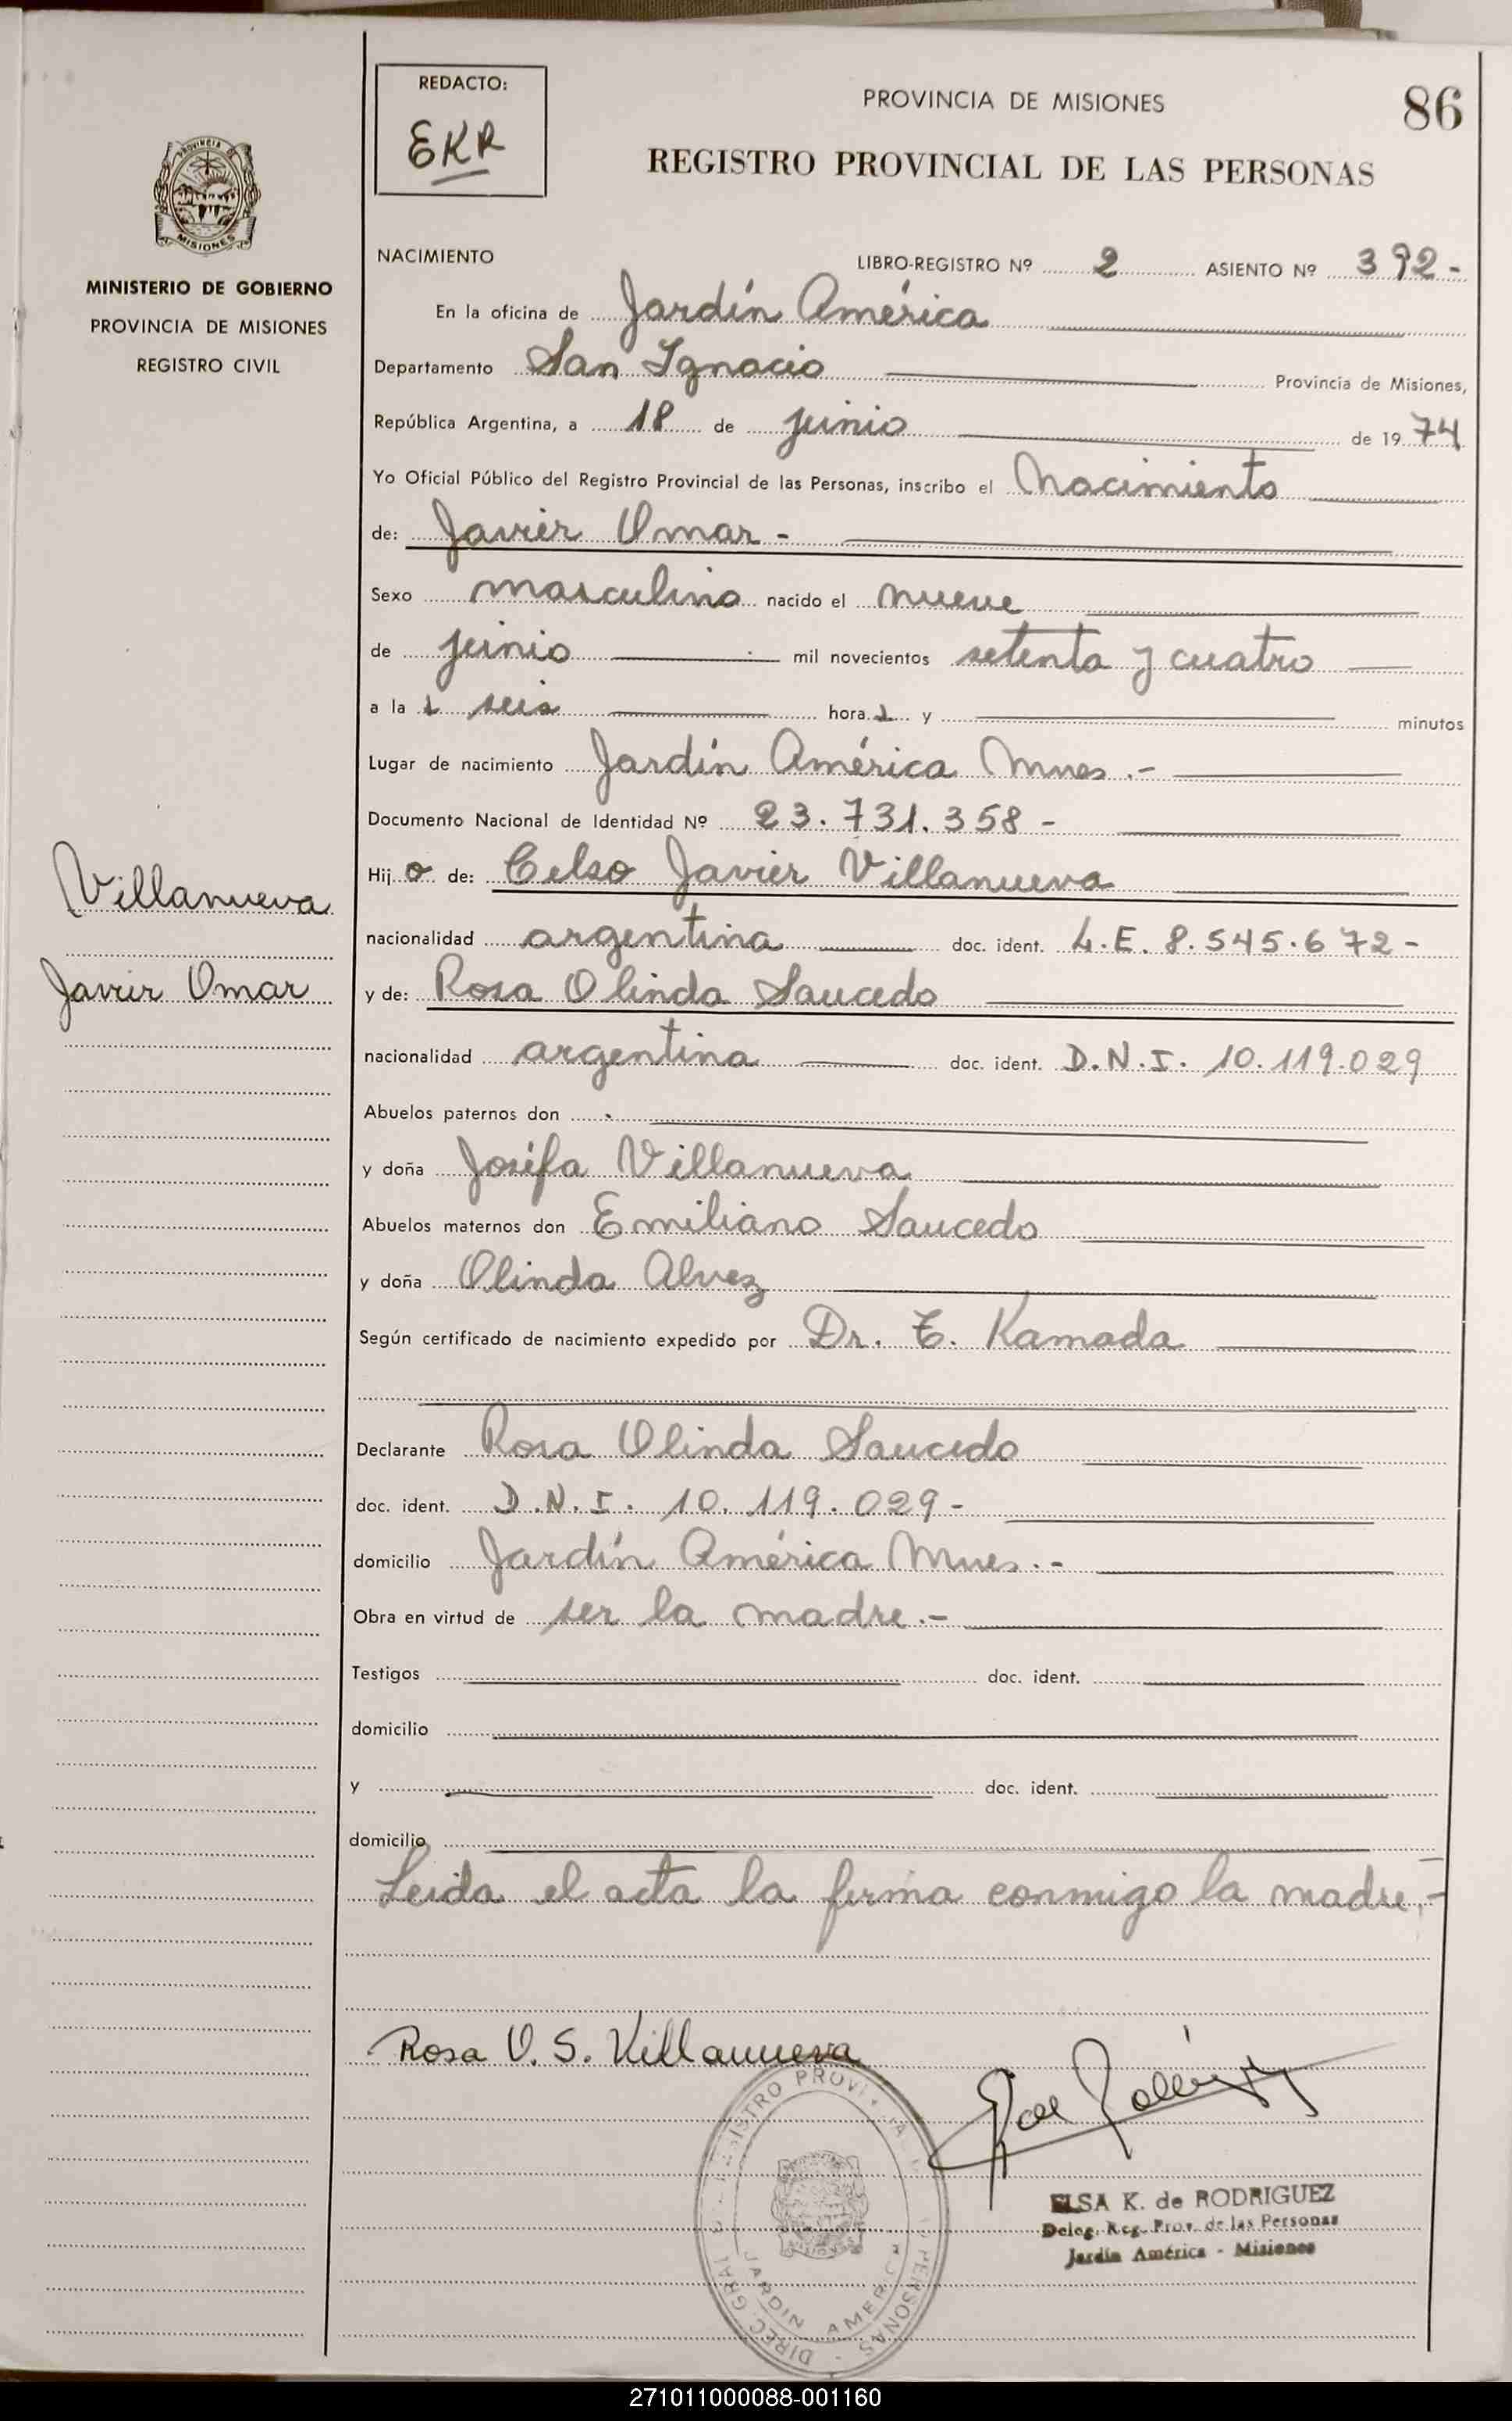 REDACTO:
EKR
PROVINCIA DE MISIONES
86
REGISTRO PROVINCIAL DE LAS PERSONAS
MISIONES
MINISTERIO DE GOBIERNO
PROVINCIA DE MISIONES
REGISTRO CIVIL
NACIMIENTO
LIBRO-REGISTRO Nº 2 ASIENTO Nº 392-
En la oficina de Jardín América
Departamento San Ignacio Provincia de Misiones,
República Argentina, a 18 de junio de 1974
Yo Oficial Público del Registro Provincial de las Personas, inscribo el Nacimiento
de: Javier Omar -
Sexo masculino nacido el nueve
de junio mil novecientos setenta y cuatro
a la s seis hora s y minutos
Lugar de nacimiento Jardín América Mnes.-
Documento Nacional de Identidad Nº 23.731.358-
Hijo de: Celso Javier Villanueva
Villanueva
nacionalidad argentina doc. ident. L.E. 8.545.672-
Javier Omar
y de: Rosa Olinda Saucedo
nacionalidad argentina doc. ident. D.N.I. 10.119.029
Abuelos paternos don
y doña Josefa Villanueva
Abuelos maternos don Emiliano Saucedo
y doña Olinda Alvez
Según certificado de nacimiento expedido por Dr. T. Kamada
Declarante Rosa Olinda Saucedo
doc. ident. D.N.I. 10.119.029-
domicilio Jardín América Mnes.-
Obra en virtud de ser la madre.-
Testigos doc. ident.
domicilio
y doc. ident.
domicilio
Leida el acta la firma conmigo la madre.-
Rosa O. S. Villanueva
ELSA K. de RODRIGUEZ
Deleg. Reg. Prov. de las Personas
Jardín América - Misiones
JARDIN AMERICA
271011000088-001160